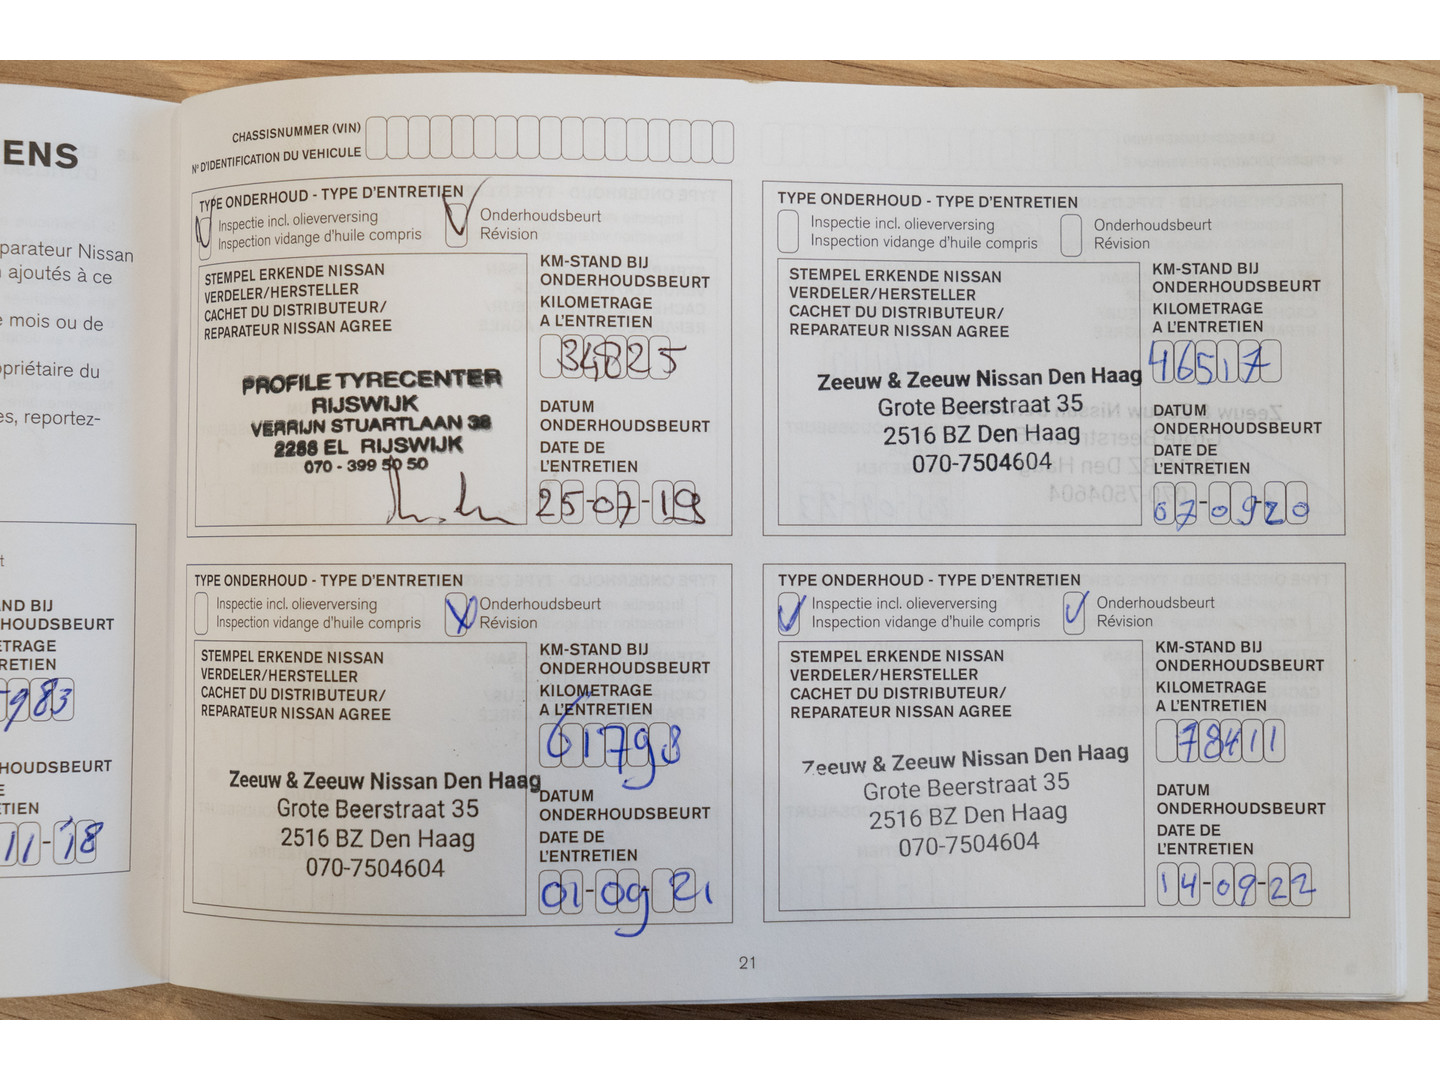 ENS
parateur Nissan
ajoutés à ce
e mois ou de
opriétaire du
es, reportez-
AND BIJ
HOUDSBEURT
ETRAGE
RETIEN
983
HOUDSBEURT
TIEN
11-18
CHASSISNUMMER (VIN)
N° D'IDENTIFICATION DU VEHICULE
TYPE ONDERHOUD - TYPE D'ENTRETIEN
Inspectie incl. olieverversing
Inspection vidange d'huile compris
Onderhoudsbeurt
Révision
STEMPEL ERKENDE NISSAN
VERDELER/HERSTELLER
CACHET DU DISTRIBUTEUR/
REPARATEUR NISSAN AGREE
PROFILE TYRECENTER
RIJSWIJK
VERRIJN STUARTLAAN 38
2288 EL RIJSWIJK
070 - 399 50 50
KM-STAND BIJ
ONDERHOUDSBEURT
KILOMETRAGE
A L'ENTRETIEN
34825
DATUM
ONDERHOUDSBEURT
DATE DE
L'ENTRETIEN
25-07-19
TYPE ONDERHOUD - TYPE D'ENTRETIEN
Inspectie incl. olieverversing
Inspection vidange d'huile compris
Onderhoudsbeurt
Révision
STEMPEL ERKENDE NISSAN
VERDELER/HERSTELLER
CACHET DU DISTRIBUTEUR/
REPARATEUR NISSAN AGREE
Zeeuw & Zeeuw Nissan Den Haag
Grote Beerstraat 35
2516 BZ Den Haag
070-7504604
KM-STAND BIJ
ONDERHOUDSBEURT
KILOMETRAGE
A L'ENTRETIEN
46517
DATUM
ONDERHOUDSBEURT
DATE DE
L'ENTRETIEN
07-09-20
TYPE ONDERHOUD - TYPE D'ENTRETIEN
Inspectie incl. olieverversing
Inspection vidange d'huile compris
Onderhoudsbeurt
Révision
STEMPEL ERKENDE NISSAN
VERDELER/HERSTELLER
CACHET DU DISTRIBUTEUR/
REPARATEUR NISSAN AGREE
Zeeuw & Zeeuw Nissan Den Haag
Grote Beerstraat 35
2516 BZ Den Haag
070-7504604
KM-STAND BIJ
ONDERHOUDSBEURT
KILOMETRAGE
A L'ENTRETIEN
61798
DATUM
ONDERHOUDSBEURT
DATE DE
L'ENTRETIEN
01-09 21
TYPE ONDERHOUD - TYPE D'ENTRETIEN
Inspectie incl. olieverversing
Inspection vidange d'huile compris
Onderhoudsbeurt
Révision
STEMPEL ERKENDE NISSAN
VERDELER/HERSTELLER
CACHET DU DISTRIBUTEUR/
REPARATEUR NISSAN AGREE
Zeeuw & Zeeuw Nissan Den Haag
Grote Beerstraat 35
2516 BZ Den Haag
070-7504604
KM-STAND BIJ
ONDERHOUDSBEURT
KILOMETRAGE
A L'ENTRETIEN
78411
DATUM
ONDERHOUDSBEURT
DATE DE
L'ENTRETIEN
14-09-22
21